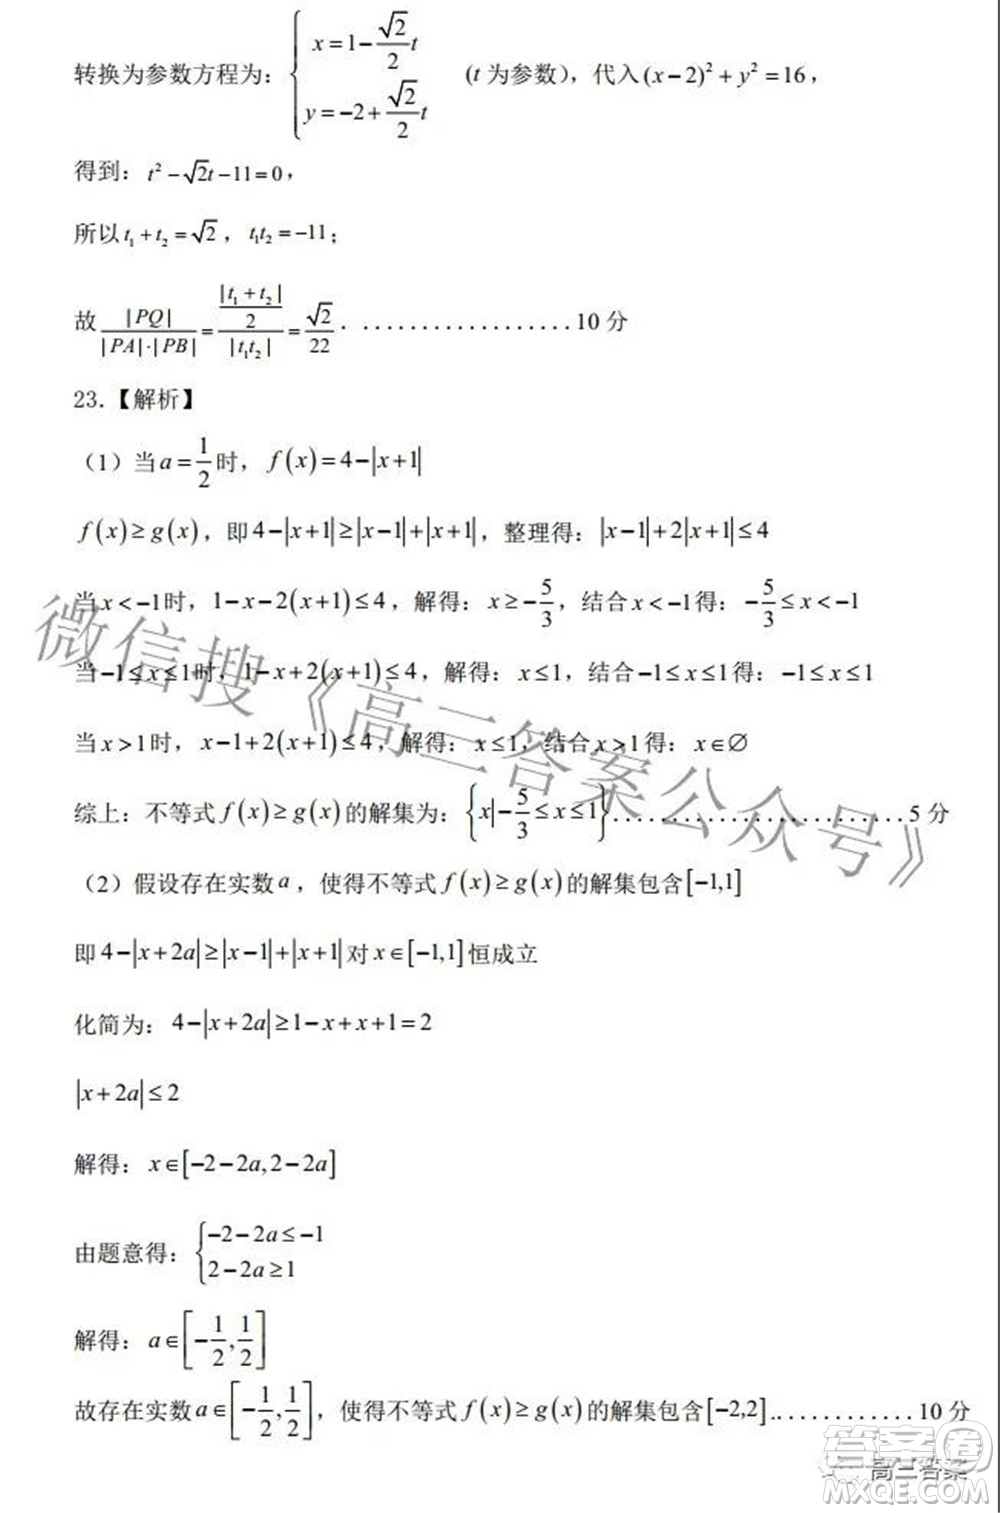 转换为参数方程为：{x=1-\frac{\sqrt{2}}{2}t, y=-2+\frac{\sqrt{2}}{2}t （t 为参数），代入(x-2)²+y²=16，
得到：t²-√2t-11=0，
所以 t₁+t₂=√2，t₁t₂=-11；
故 |PQ|/(|PA|·|PB|) = (|t₁+t₂|/2)/|t₁t₂| = √2/22．..................10 分
23.【解析】
（1）当 a=1/2 时，f(x)=4-|x+1|
f(x)≥g(x)，即 4-|x+1|≥|x-1|+|x+1|，整理得：|x-1|+2|x+1|≤4
当 x<-1 时，1-x-2(x+1)≤4，解得：x≥-5/3，结合 x<-1 得：-5/3≤x<-1
当 -1≤x≤1 时，1-x+2(x+1)≤4，解得：x≤1，结合 -1≤x≤1 得：-1≤x≤1
当 x>1 时，x-1+2(x+1)≤4，解得：x≤1，结合 x>1 得：x∈∅
综上：不等式 f(x)≥g(x) 的解集为：{x|-5/3≤x≤1}.........................5 分
（2）假设存在实数 a，使得不等式 f(x)≥g(x) 的解集包含[-1,1]
即 4-|x+2a|≥|x-1|+|x+1| 对 x∈[-1,1] 恒成立
化简为：4-|x+2a|≥1-x+x+1=2
|x+2a|≤2
解得：x∈[-2-2a,2-2a]
由题意得：{-2-2a≤-1, 2-2a≥1
解得：a∈[-1/2,1/2]
故存在实数 a∈[-1/2,1/2]，使得不等式 f(x)≥g(x) 的解集包含[-2,2]..............10 分
微信搜《高三答案公众号》
答案圈
高三答案